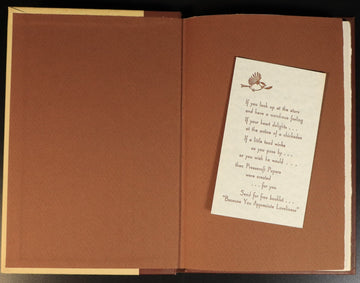 If you look up at the stars
and have a wondrous feeling
If your heart delights . . .
at the antics of a chickadee
If a little toad winks
as you pass by . . .
as you wish he would . . .
then Pinecroft Papers
were created
. . . for you
Send for free booklet . . .
"Because You Appreciate Loveliness"